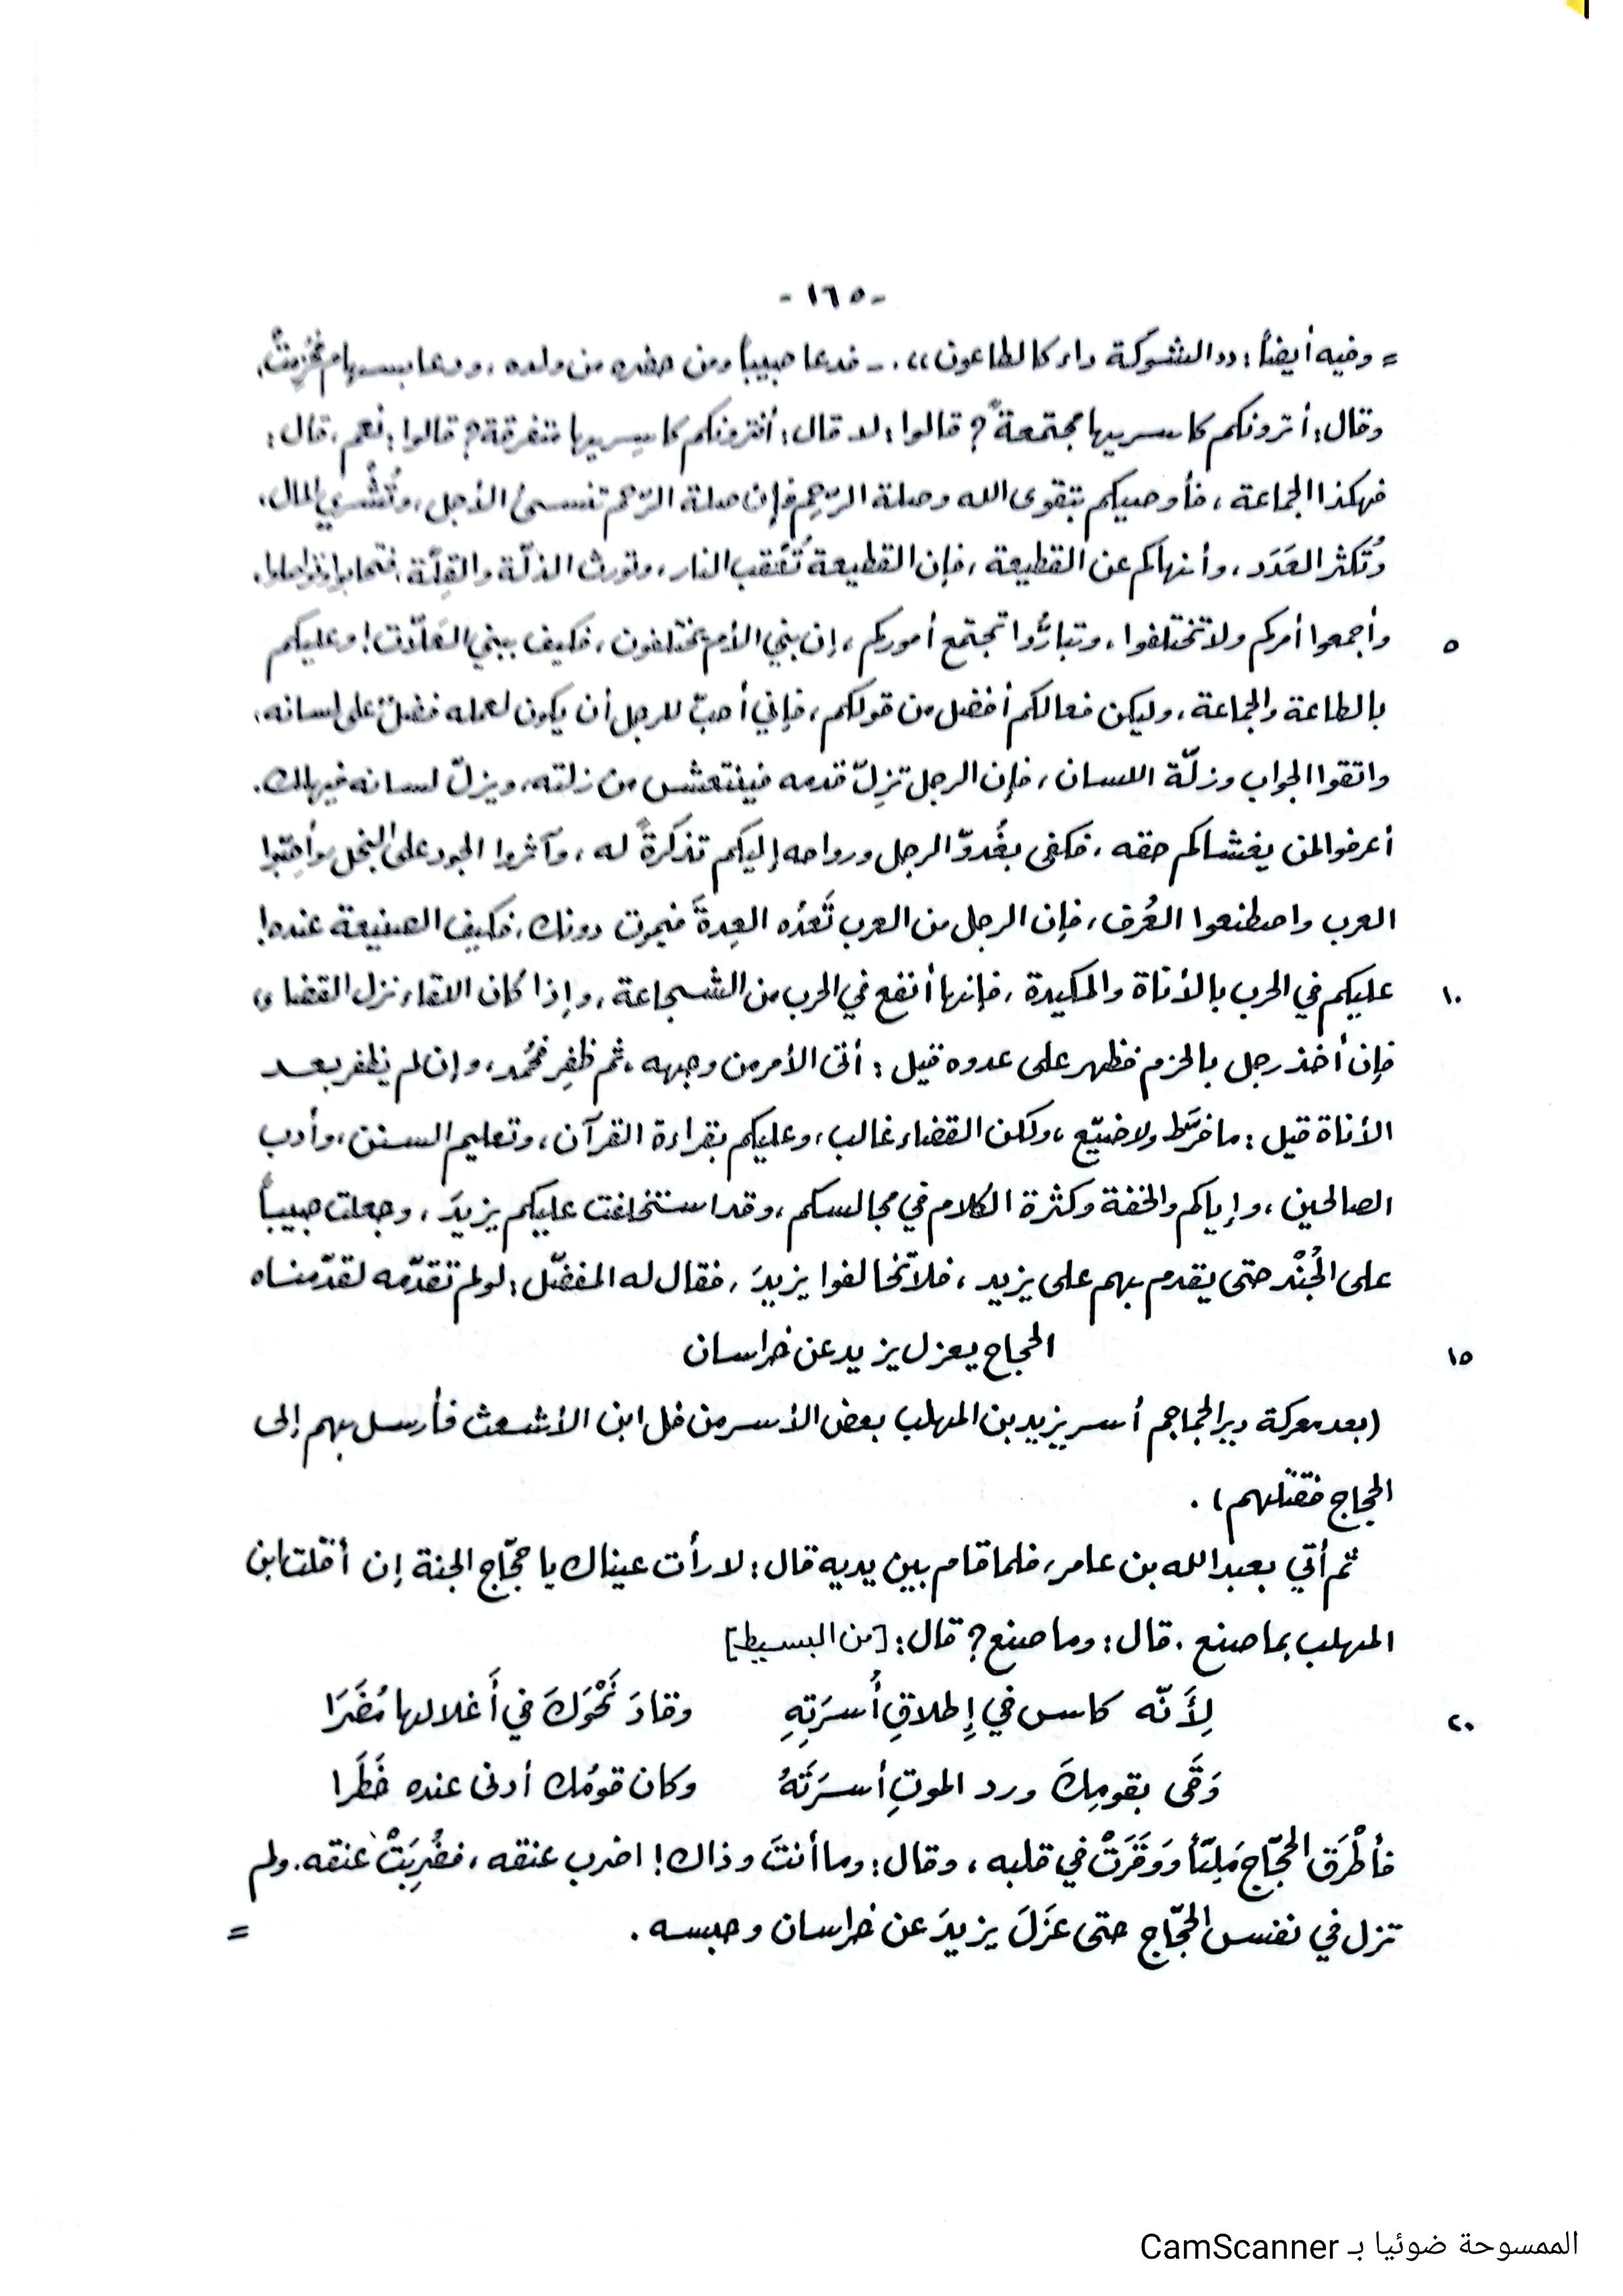 - ١٦٥ -
= وفيه أيضاً: «الشوكة داء كالطاعون». - فدعا حبيباً ومن حضره من ولده، ودعا بسهام فحُزِمتْ،
وقال: أترونكم كاسريها مجتمعةً؟ قالوا: لا. قال: أفترونكم كاسريها متفرقة؟ قالوا: نعم، قال:
فهكذا الجماعة، فأوصيكم بتقوى الله وصلة الرّحِم فإن صلة الرّحم تنسئ الأجل، وتُثْري المال،
وتُكثر العَدَد، وأنهاكم عن القطيعة، فإن القطيعة تُعْقب النار، وتورث الذلّة والقِلّة، فتحابوا وتواصلوا،
٥ وأجمعوا أمركم ولا تختلفوا، وتبارُّوا تجتمع أموركم، إن بني الأم يختلفون، فكيف ببني العَلّات! وعليكم
بالطاعة والجماعة، وليكن فعالكم أفضل من قولكم، فإني أحبّ للرجل أن يكون لعمله فضلٌ على لسانه،
واتقوا الجواب وزلّة اللسان، فإن الرجل تزِلّ قدمه فينتعش من زلته، ويزلّ لسانه فيهلك.
أعرفوا لمن يغشاكم حقه، فكفى بغُدوّ الرجل ورواحه إليكم تذكرةً له، وآثروا الجود على البخل وأحِبّوا
العرب واصطنعوا العُرف، فإن الرجل من العرب تَعدُه العِدةَ فيموت دونك، فكيف الصنيعة عنده!
١٠ عليكم في الحرب بالأناة والمكيدة، فإنها أنفع في الحرب من الشجاعة، وإذا كان اللقاء نزل القضاء،
فإن أخذ رجل بالحزم فظهر على عدوه قيل: أتى الأمر من وجهه، ثم ظفِر فحُمد، وإن لم يظفر بعد
الأناة قيل: ما فرّط ولا ضيّع، ولكن القضاء غالب، وعليكم بقراءة القرآن، وتعليم السنن، وأدب
الصالحين، وإياكم والخفة وكثرة الكلام في مجالسكم، وقد استخلفت عليكم يزيدَ، وجعلت حبيباً
على الجُنْد حتى يقدم بهم على يزيد، فلا تخالفوا يزيدَ، فقال له المفضّل: لو لم تقدّمه لقدّمناه
١٥ الحجاج يعزل يزيد عن خراسان
(بعد معركة دير الجماجم أسر يزيد بن المهلب بعض الأسر من فل ابن الأشعث فأرسل بهم إلى
الحجاج فقتلهم).
ثم أتي بعبد الله بن عامر، فلما قام بين يديه قال: لا رأت عيناك يا حجّاج الجنة إن أقلت ابن
المهلب بما صنع. قال: وما صنع؟ قال: [من البسيط]
٢٠ لِأَنّه كاس في إِطلاقِ أُسرَتِهِ وقادَ نَحْوَكَ في أَغلالها مُضَرَا
وَقَى بقومِكَ ورد الموتِ أسرَتَهُ وكان قومُك أدنى عنده خَطَرا
فأطْرَق الحجّاج مَلِيّأ وَوَقَرَتْ في قلبه، وقال: وما أنتَ وذاك! اضرب عنقه، فضُرِبَتْ عنقه. ولم
تزل في نفس الحجّاج حتى عَزَلَ يزيدَ عن خراسان وحبسه. =
الممسوحة ضوئيا بـ CamScanner